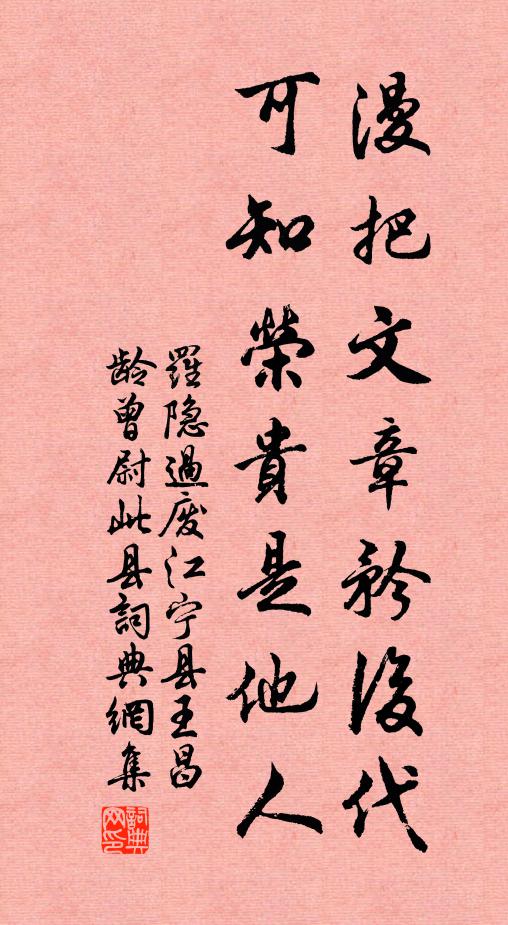 漫把文章矜後代
可知榮貴是他人
羅隐過废江宁县王昌
龄曾尉此县詞典網集
詞典网印